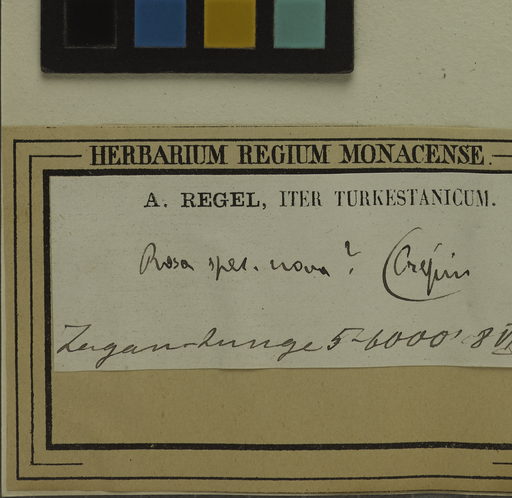 HERBARIUM REGIUM MONACENSE.
A. REGEL, ITER TURKESTANICUM.
Rosa spec. nova? (Crépin
5-6000' 8 VI